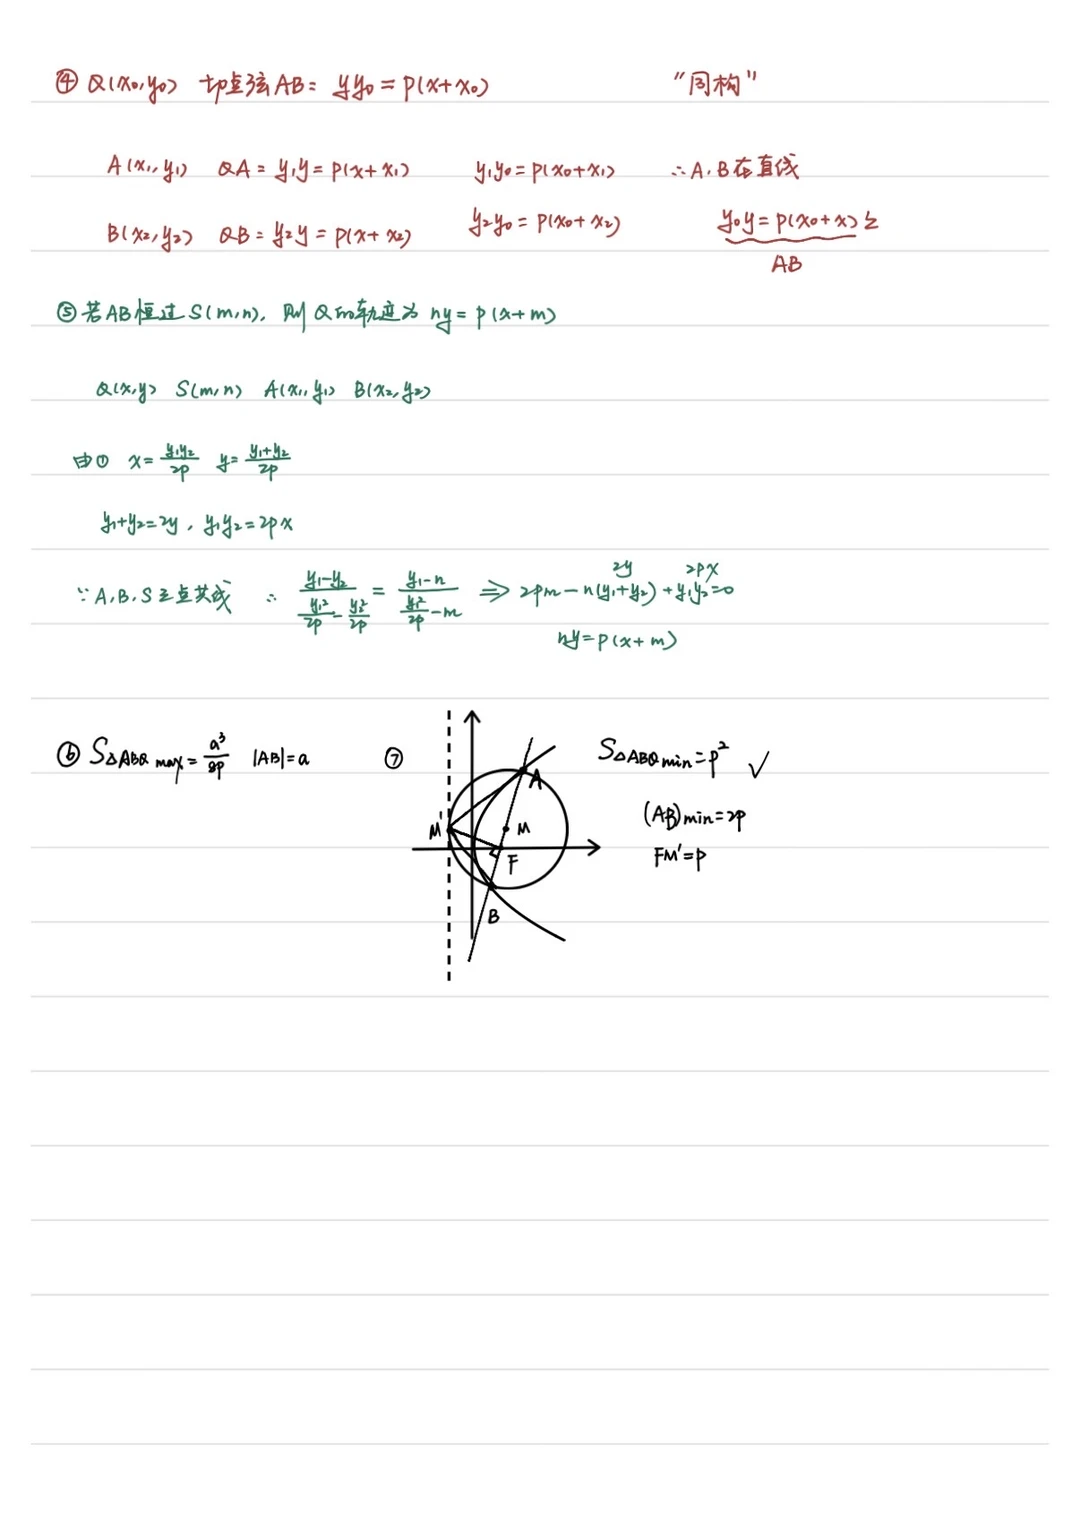 ④ Q(x₀,y₀) 切点弦AB: yy₀=p(x+x₀) "同构"
A(x₁,y₁) QA: y₁y=p(x+x₁) y₁y₀=p(x₀+x₁) ∴A.B在直线
B(x₂,y₂) QB: y₂y=p(x+x₂) y₂y₀=p(x₀+x₂) y₀y=p(x₀+x)上
AB
⑤若AB恒过S(m,n), 则Q的轨迹为 ny=p(x+m)
Q(x,y) S(m,n) A(x₁,y₁) B(x₂,y₂)
由① x=y₁y₂/2p y=y₁+y₂/2p
y₁+y₂=2y, y₁y₂=2px
2y 2px
∵A.B.S三点共线 ∴ (y₁-y₂)/(y₁²/2p-y₂²/2p)=(y₁-n)/(y₁²/2p-m) ⇒ 2pm-n(y₁+y₂)+y₁y₂=0
ny=p(x+m)
⑥ S△ABQ max=a³/8p |AB|=a
⑦ S△ABQ min=p² ✓
(AB)min=2p
FM'=p
A
M' M
F
B